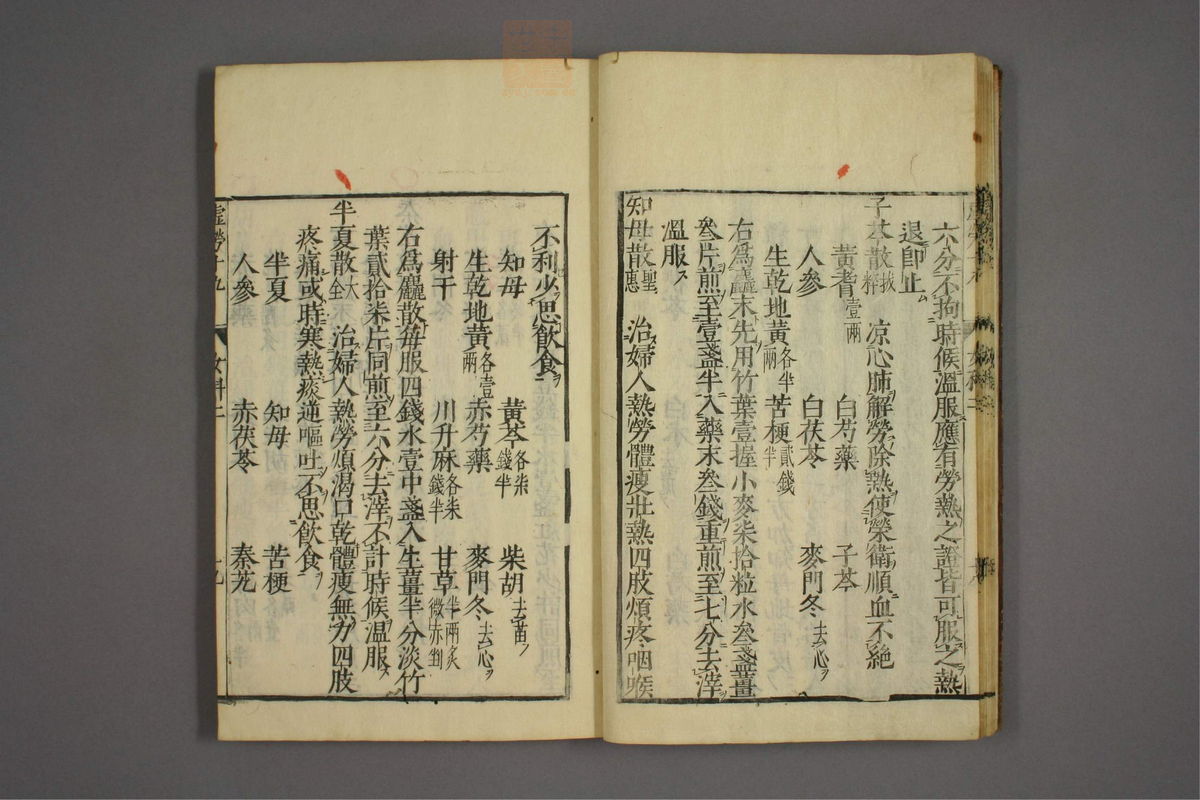 六分不拘時候溫服應有勞熱之證皆可服之熱
退卽止
子芩散 拔粹 凉心肺解勞除熱使榮衛順血不絕
黃耆壹兩 白芍藥 子芩
人參 白茯苓 麥門冬去心
生乾地黃各半兩 苦梗貳錢半
右爲麤末先用竹葉壹握小麥柒拾粒水叄盞薑
叄片煎至壹盞半入藥末叄錢重煎至七分去滓
溫服
知母散 聖惠 治婦人熱勞體瘦壯熱四肢煩疼咽喉
不利少思飮食
知母 黃芩各柒錢半 柴胡去苗
生乾地黃各壹兩 赤芍藥 麥門冬去心
射干 川升麻各柒錢半 甘草半兩炙微赤剉
右爲麤散每服四錢水壹中盞入生薑半分淡竹
葉貳拾柒片同煎至六分去滓不計時候溫服
半夏散 大全 治婦人熱勞煩渴口乾體瘦無力四肢
疼痛或時寒熱痰逆嘔吐不思飮食
半夏 知母 苦梗
人參 赤茯苓 秦艽